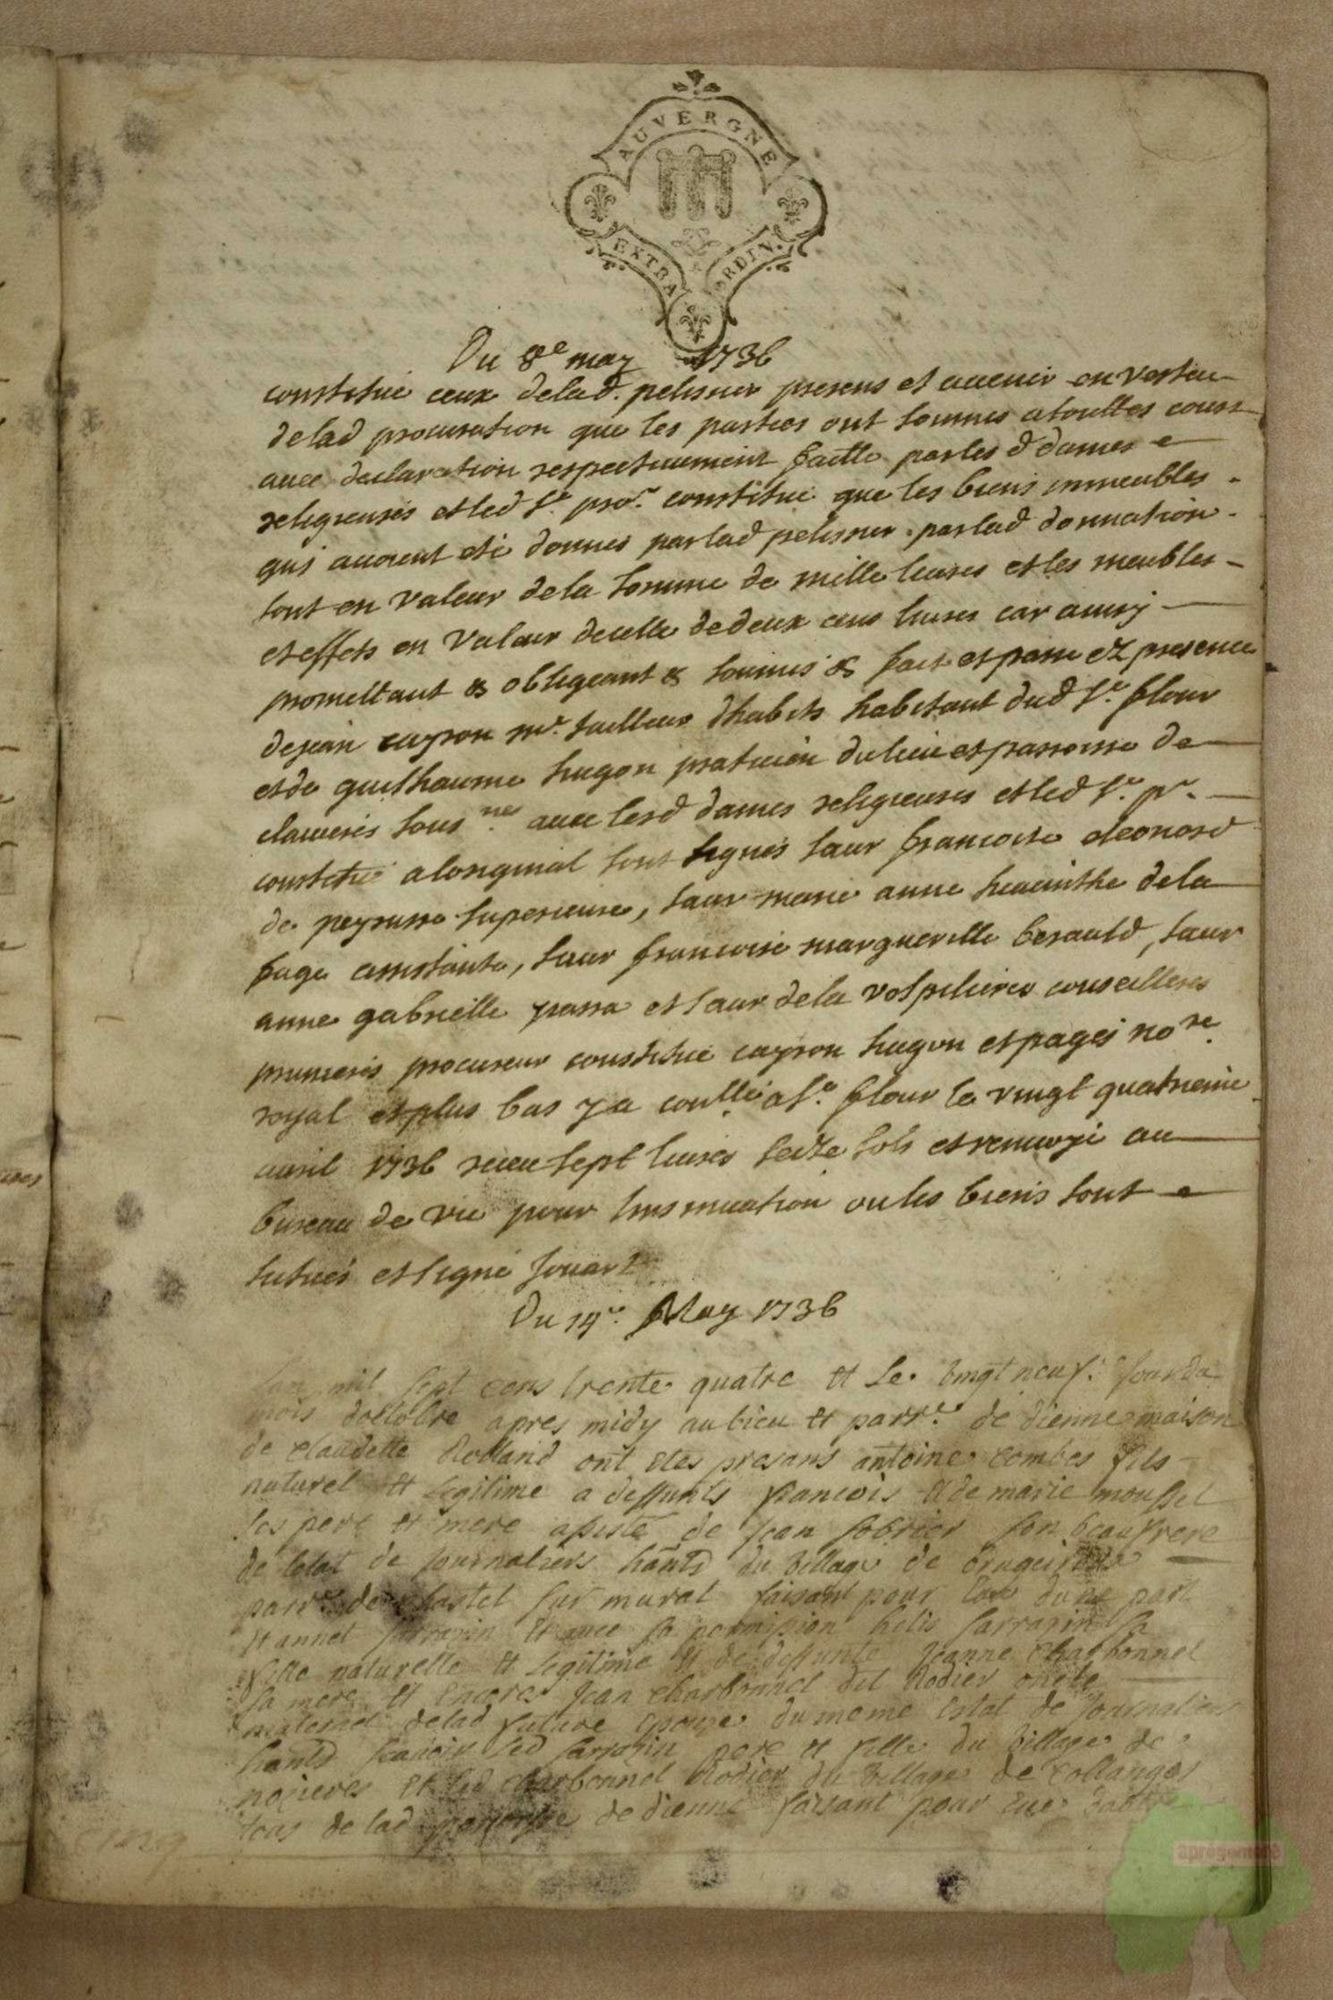 AUVERGNE
EXTRAORDIN.
Du 8e may 1736
constitué ceux delad. pelissier presens et avenir en verteu
delad procuration que les parties ont soumis a touttes cours
avec declaration respectivement faitte par les d dames
religieuses et led Sr. pror. constitué que les biens immeubles
qui avoient eté donnés parlad pelissier parlad donnation
sont en valeur de la somme de mille livres et les meubles
et effets en valeur decelle de deux cens livres car ainsy
promettant & obligeant & soumis & fait et passé ez presence
dejean cayron mr. tailleur dhabits habitant dud St. flour
et de guilhaume hugon praticien du lieu et parroisse de
clavieres sous.nes avec lesd dames religieuses et led Sr. pr.
constitué aloriginal sont signés sœur francoise eleonord
de peyrusse superieure, sœur marie anne hiacinthe de la
fage assistante, sœur francoise margueritte berauld, sœur
anne gabrielle et sœur dela volpiliere conseilleres
procureur constitué cayron hugon et pages nore.
royal et plus bas y a conllé a St. flour le vingt quatrieme
avril 1736 receu sept livres seize sols et renvoyé au
bureau de vic pour linsinuation ou les biens sont
situés et signé Jouar
Du 14e. May 1736
Lan mil sept cens trente quatre et le vingt neuf. Jour du
mois doctobre apres midy au lieu et parre. de dienne maison
de claudette Rolland ont etes presans antoine combes fils
naturel et legitime a deffunts francois et de marie mouffet
ses pere et mere assisté de jean sobrier son beaufrere
de letat de journaliers hants du village de
parre. de chastel sur murat faisant pour eux dune part
et annet sarrazin et avec sa permission helis sarrazin sa
fille naturelle et legitime et de deffunte jeanne charbonnel
sa mere et encore jean charbonnel dit Rodier oncle
maternel delad future epouze du meme estat de journaliers
hants scavoir led sarrazin pere et fille du village de
et led charbonnel Rodier du village de collanges
tous de lad parroisse de dienne faisant pour eux dautre
apregemere